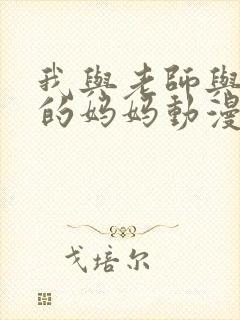 我與老師與
的妈妈動漫
戈培尔